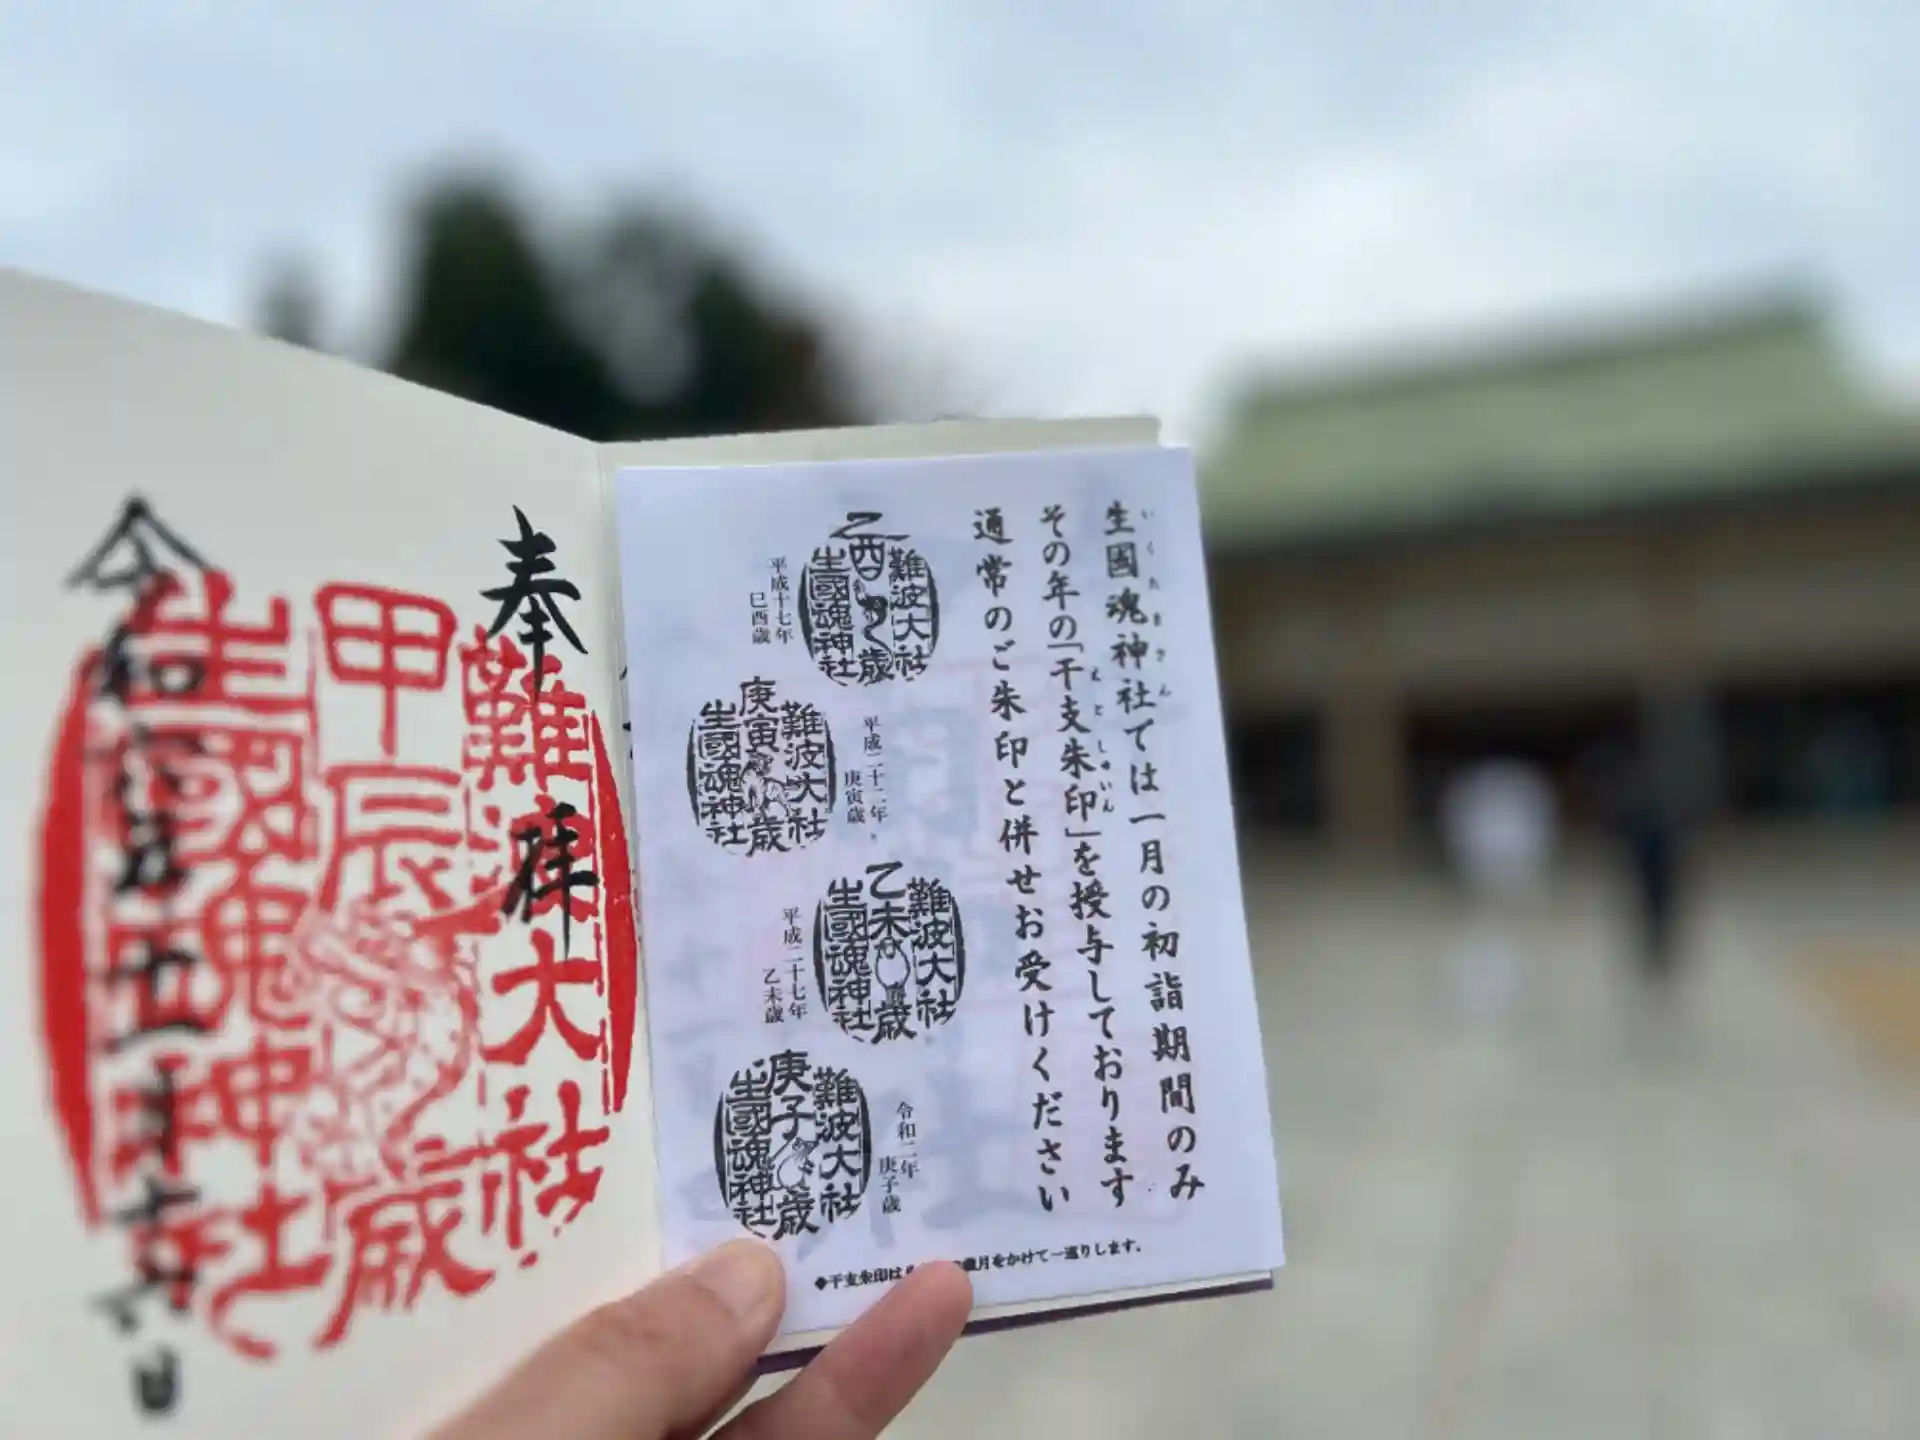 生國魂神社では一月の初詣期間のみ
いくたまさん
その年の「干支朱印」を授与しております
えとしゅいん
通常のご朱印と併せお受けください
乙酉歳
難波大社
生國魂神社
平成十七年
巳酉歳
庚寅歳
難波大社
生國魂神社
平成二十二年
庚寅歳
乙未歳
難波大社
生國魂神社
平成二十七年
乙未歳
庚子歳
難波大社
生國魂神社
令和二年
庚子歳
◆干支朱印は
歳月をかけて一巡りします。
奉拝
難波大社
甲辰歳
生國魂神社
令和